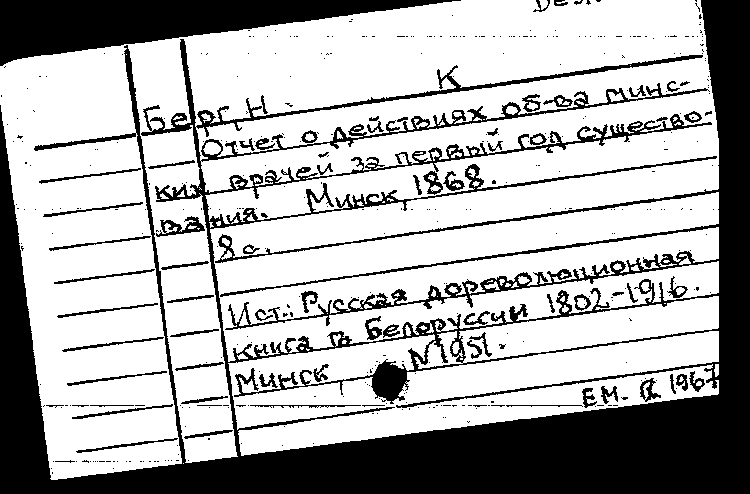 К
Берг, Н.
Отчет о действиях об-ва минс-
ких врачей за первый год существо-
вания. Минск, 1868.
8 с.
Ист.: Русская дореволюционная
книга в Белоруссии 1802-1916.
Минск, N1951.
ЕМ. 1967